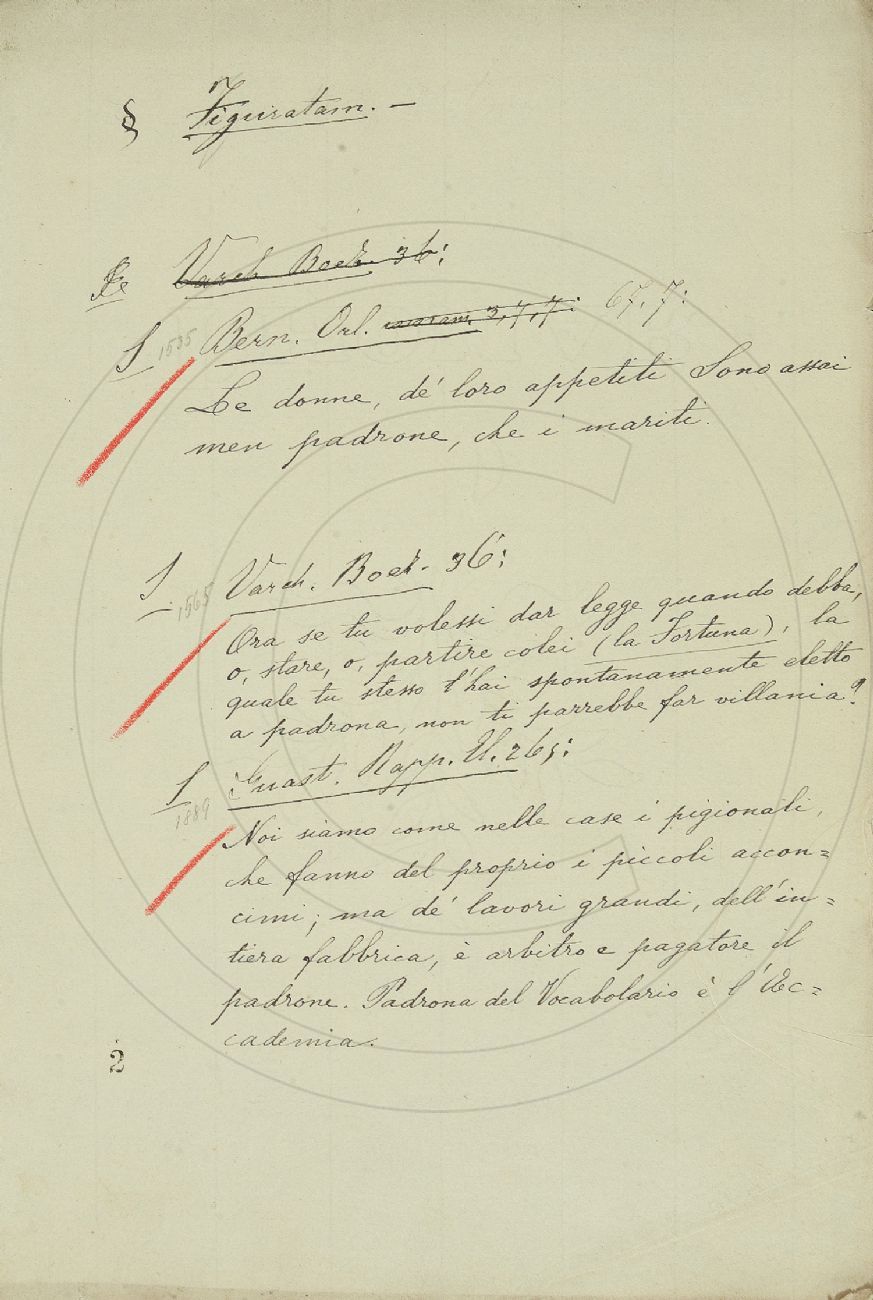 § Figuratam. —
Varch. Boez. 36:
S 1535 Bern. Orl. 3,7,7: 67.7:
Le donne, de' loro appetiti Sono assai
men padrone, che i mariti.
S 1565 Varch. Boez. 36:
Ora se tu volessi dar legge quando debba,
o, stare, o, partire colei (la Fortuna), la
quale tu stesso t'hai spontanamente eletto
a padrona, non ti parrebbe far villania?
S 1889 Guast. Rapp. U. 265:
Noi siamo come nelle case i pigionali,
che fanno del proprio i piccoli accon=
cimi; ma de' lavori grandi, dell'in=
tiera fabbrica, è arbitro e pagatore il
padrone. Padrona del Vocabolario è l'Ac=
cademia.
2